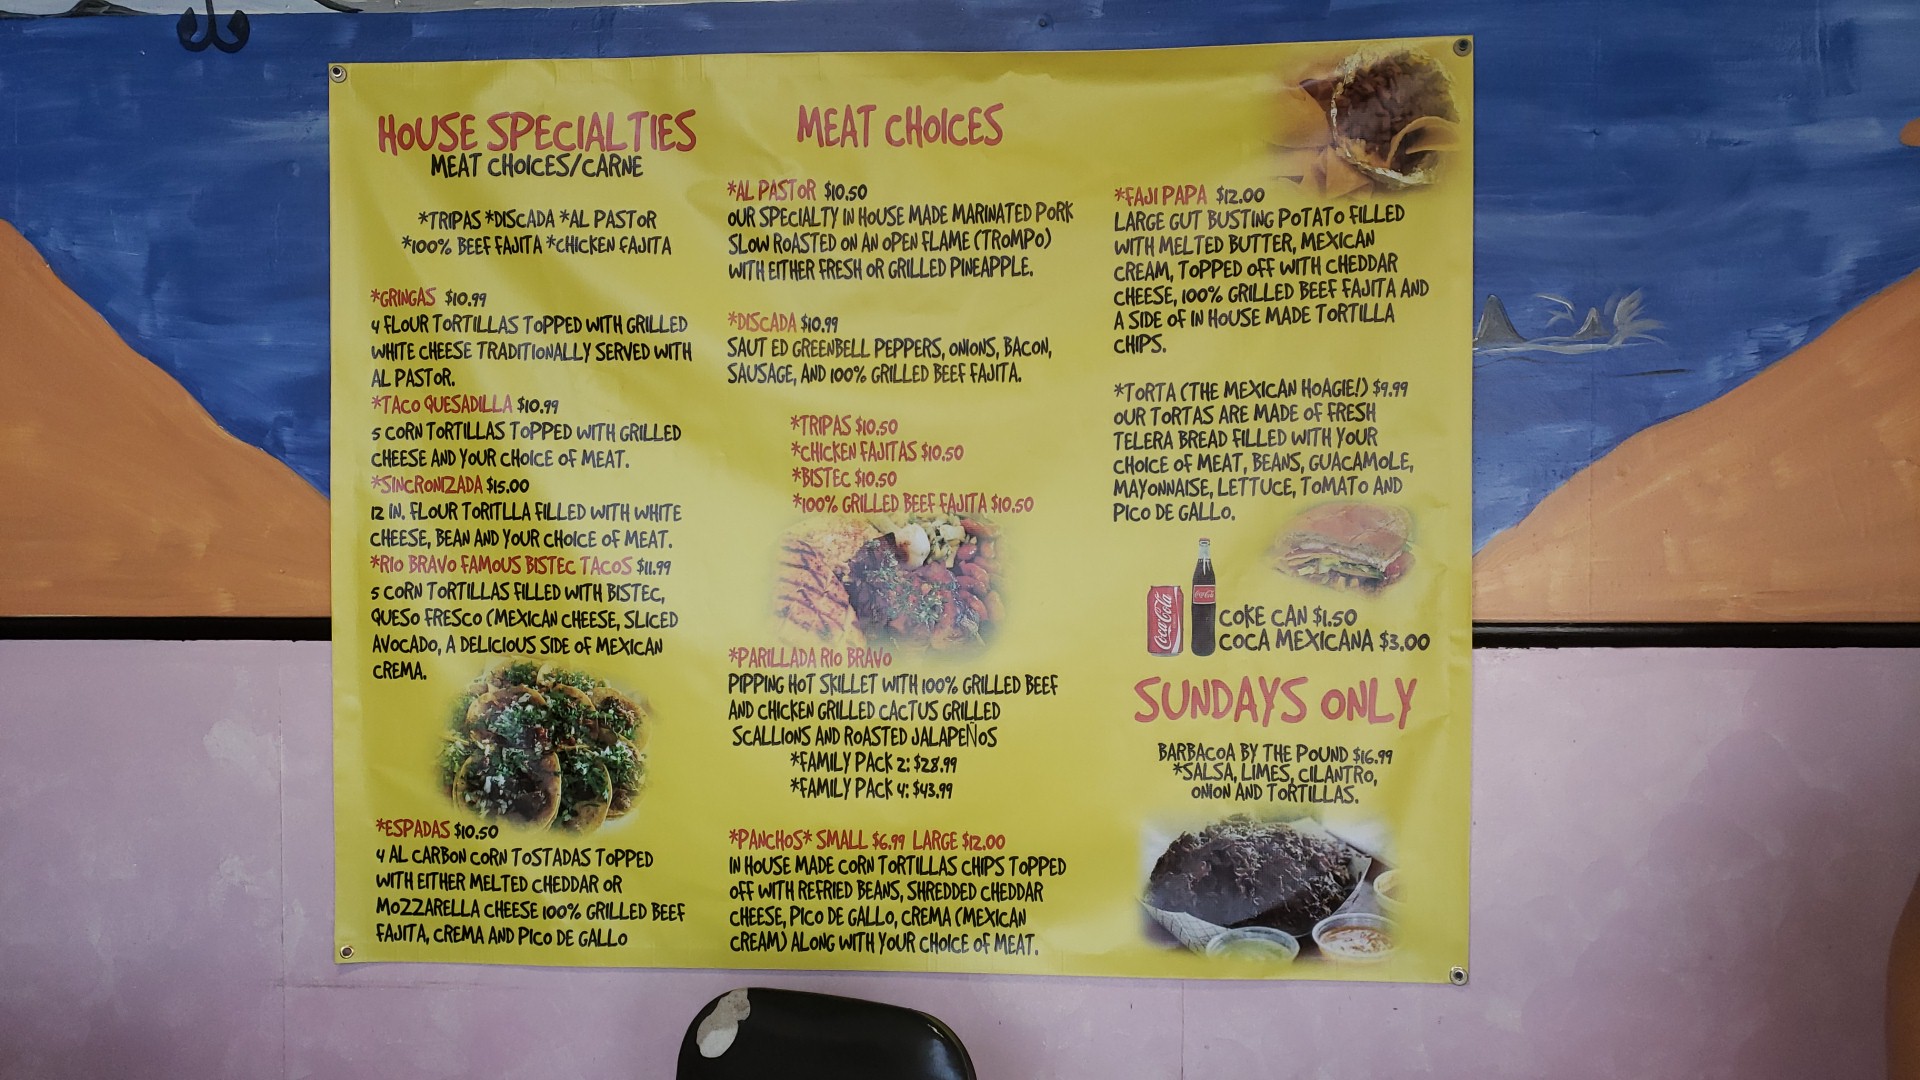 HOUSE SPECIALTIES
MEAT CHOICES/CARNE
*TRIPAS *DISCADA *AL PASTOR
*100% BEEF FAJITA *CHICKEN FAJITA
*GRINGAS $10.99
4 FLOUR TORTILLAS TOPPED WITH GRILLED
WHITE CHEESE TRADITIONALLY SERVED WITH
AL PASTOR.
*TACO QUESADILLA $10.99
5 CORN TORTILLAS TOPPED WITH GRILLED
CHEESE AND YOUR CHOICE OF MEAT.
*SINCRONIZADA $15.00
12 IN. FLOUR TORITLLA FILLED WITH WHITE
CHEESE, BEAN AND YOUR CHOICE OF MEAT.
*RIO BRAVO FAMOUS BISTEC TACOS $11.99
5 CORN TORTILLAS FILLED WITH BISTEC,
QUESO FRESCO (MEXICAN CHEESE, SLICED
AVOCADO, A DELICIOUS SIDE OF MEXICAN
CREMA.
*ESPADAS $10.50
4 AL CARBON CORN TOSTADAS TOPPED
WITH EITHER MELTED CHEDDAR OR
MOZZARELLA CHEESE 100% GRILLED BEEF
FAJITA, CREMA AND PICO DE GALLO
MEAT CHOICES
*AL PASTOR $10.50
OUR SPECIALTY IN HOUSE MADE MARINATED PORK
SLOW ROASTED ON AN OPEN FLAME (TROMPO)
WITH EITHER FRESH OR GRILLED PINEAPPLE.
*DISCADA $10.99
SAUT ED GREENBELL PEPPERS, ONIONS, BACON,
SAUSAGE, AND 100% GRILLED BEEF FAJITA.
*TRIPAS $10.50
*CHICKEN FAJITAS $10.50
*BISTEC $10.50
*100% GRILLED BEEF FAJITA $10.50
*PARILLADA RIO BRAVO
PIPPING HOT SKILLET WITH 100% GRILLED BEEF
AND CHICKEN GRILLED CACTUS GRILLED
SCALLIONS AND ROASTED JALAPEÑOS
*FAMILY PACK 2: $28.99
*FAMILY PACK 4: $43.99
*PANCHOS* SMALL $6.99 LARGE $12.00
IN HOUSE MADE CORN TORTILLAS CHIPS TOPPED
OFF WITH REFRIED BEANS, SHREDDED CHEDDAR
CHEESE, PICO DE GALLO, CREMA (MEXICAN
CREAM) ALONG WITH YOUR CHOICE OF MEAT.
*FAJI PAPA $12.00
LARGE GUT BUSTING POTATO FILLED
WITH MELTED BUTTER, MEXICAN
CREAM, TOPPED OFF WITH CHEDDAR
CHEESE, 100% GRILLED BEEF FAJITA AND
A SIDE OF IN HOUSE MADE TORTILLA
CHIPS.
*TORTA (THE MEXICAN HOAGIE!) $9.99
OUR TORTAS ARE MADE OF FRESH
TELERA BREAD FILLED WITH YOUR
CHOICE OF MEAT, BEANS, GUACAMOLE,
MAYONNAISE, LETTUCE, TOMATO AND
PICO DE GALLO.
Coca-Cola
Coca-Cola
COKE CAN $1.50
COCA MEXICANA $3.00
SUNDAYS ONLY
BARBACOA BY THE POUND $16.99
*SALSA, LIMES, CILANTRO,
ONION AND TORTILLAS.